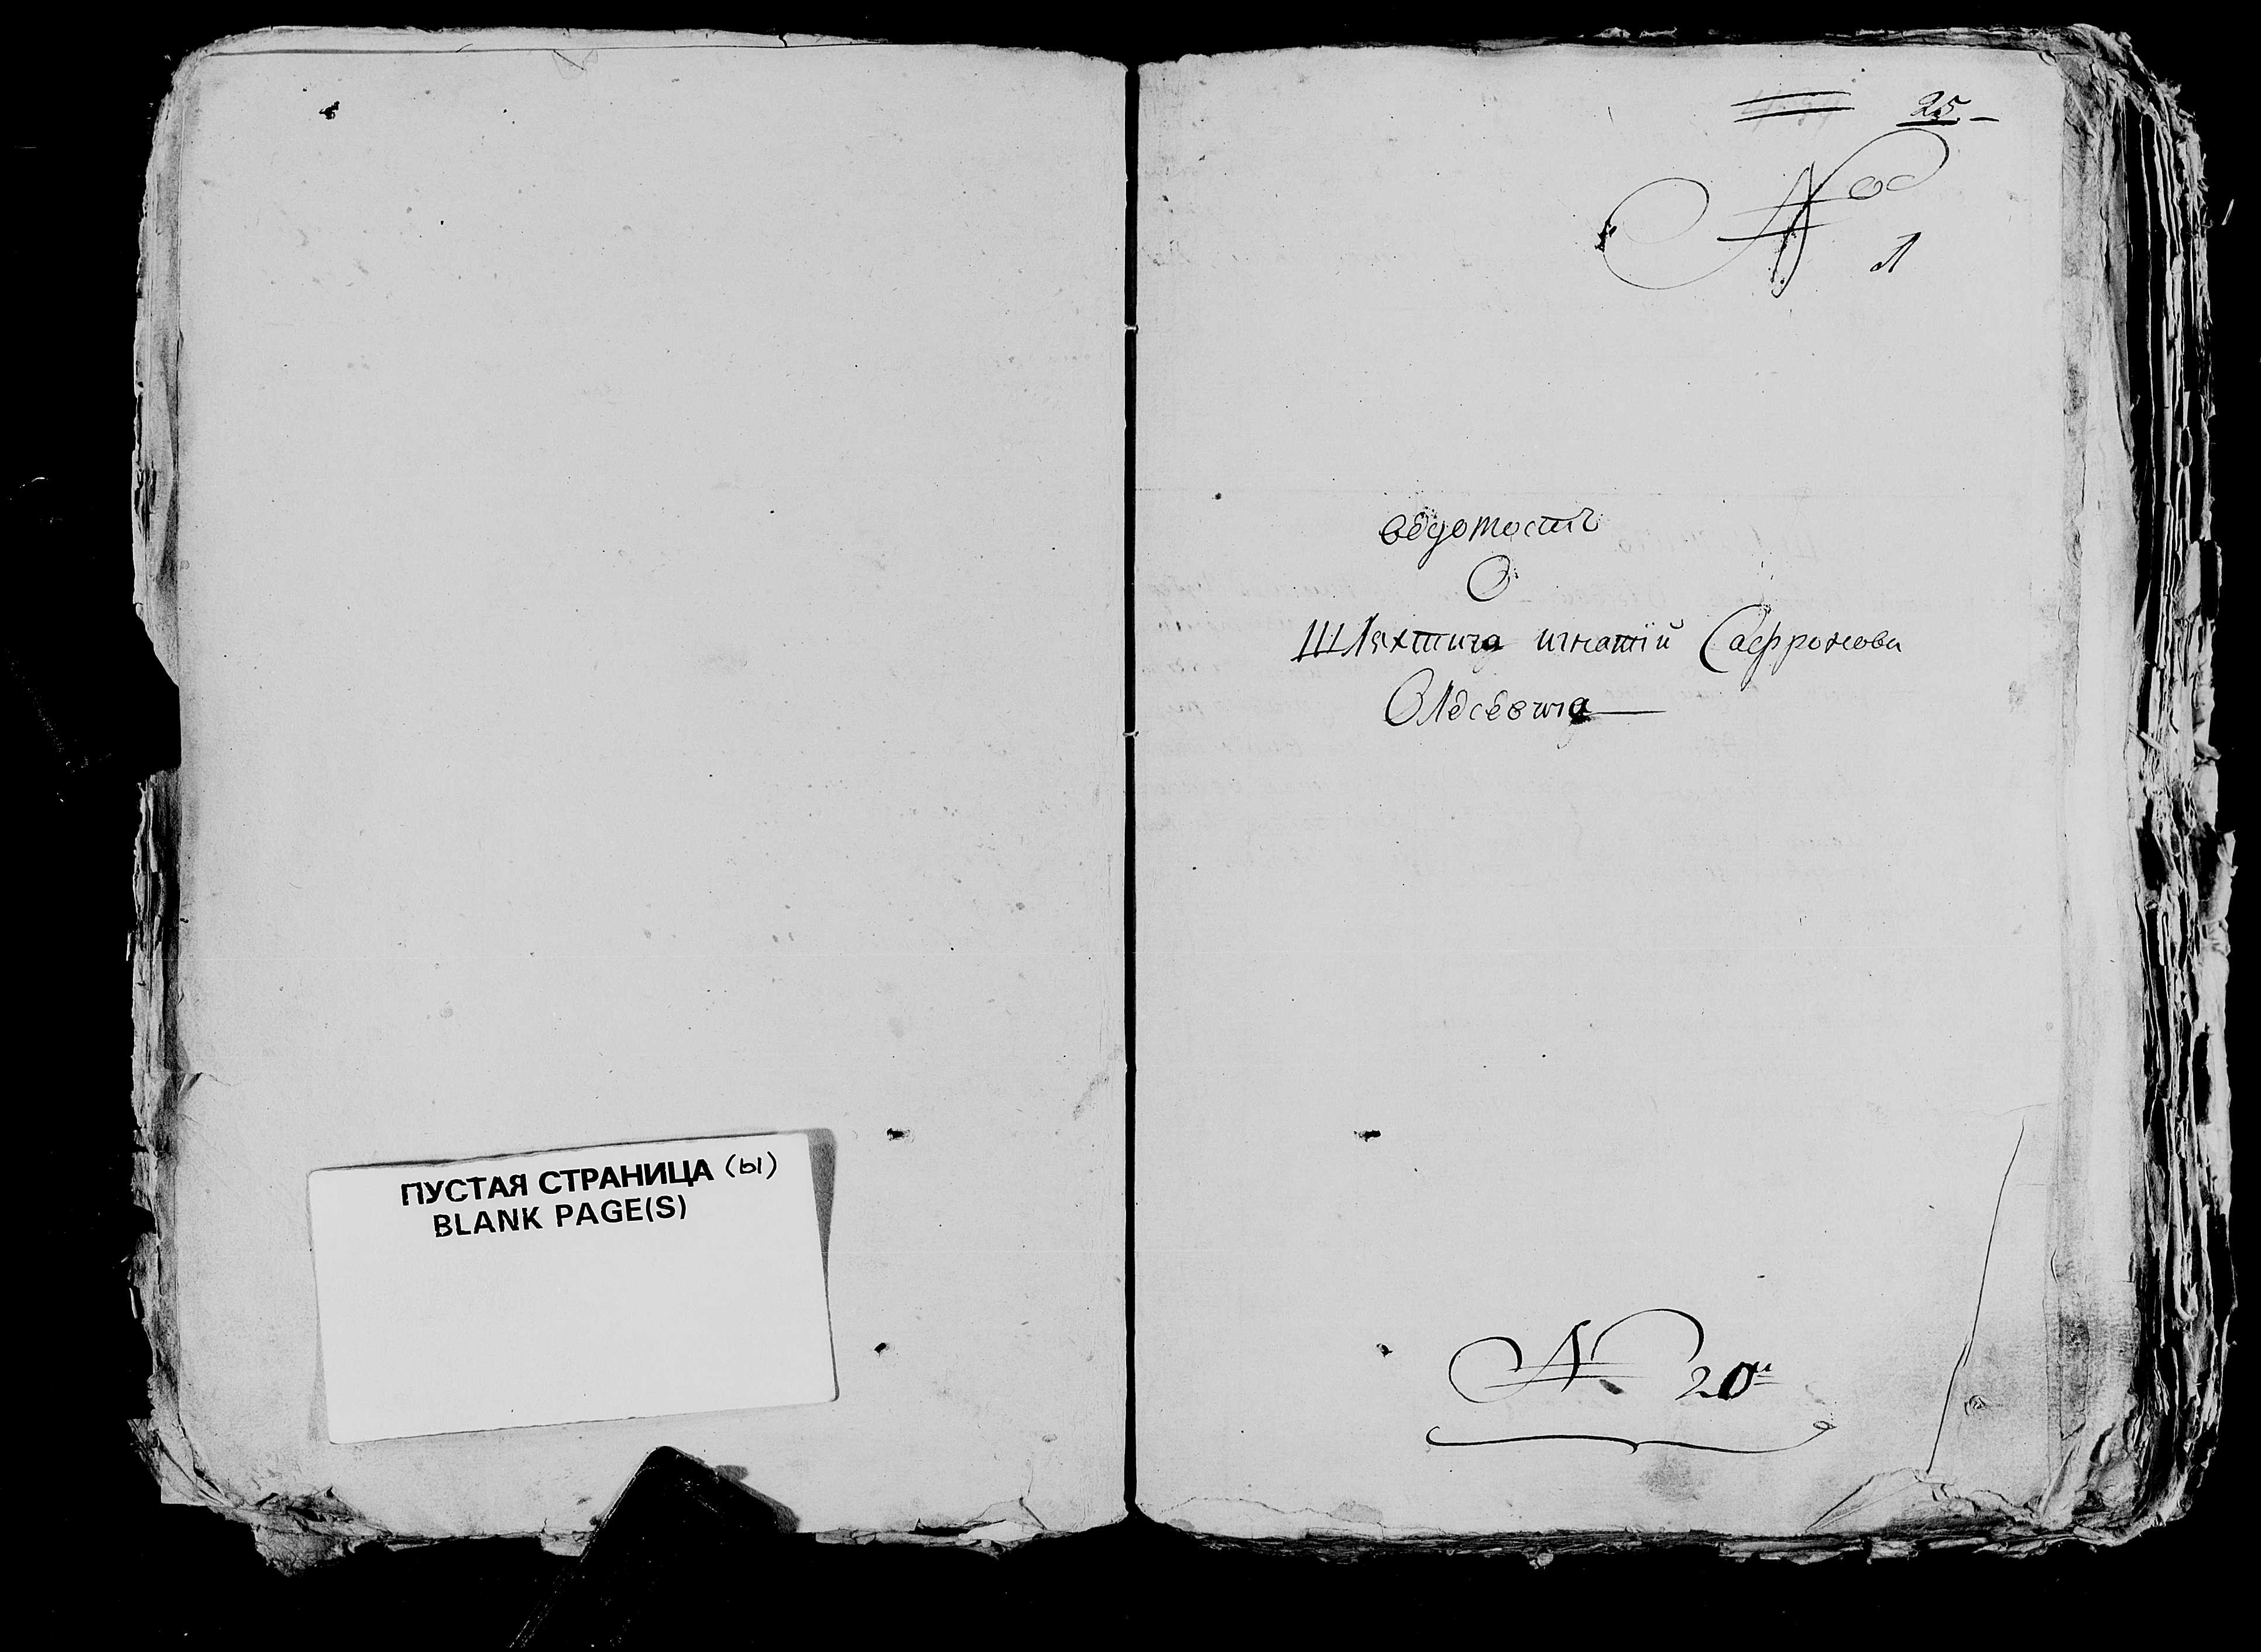 ПУСТАЯ СТРАНИЦА (ы)
BLANK PAGE(S)
25
№
Л
ведомость
О
Шляхтича игнатій Сафронови
Олесевича
№ 20й